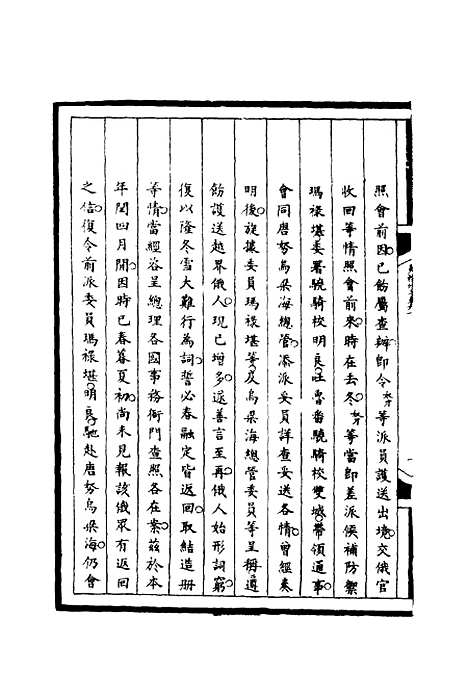 照會前因已飭屬查辦即令奴才等派員護送出境交俄官
收回等情照會前來時在去冬奴才等當即差派候補防禦
瑪祿堪委署驍騎校明良吐魯番驍騎校雙城帶領通事
會同唐努烏梁海總管添派妥員詳查妥送各情曾經奏
明後旋據委員瑪祿堪等及烏梁海總管委員等呈稱遵
飭護送越界俄人現已增多逐善言至再俄人始形詞窮
復以隆冬雪大難行為詞誓必春融定皆返回取結造冊
等情當經咨呈總理各國事務衙門查照各在案茲於本
年閏四月開因時已春暮夏初尚未見報該俄眾有返回
之信復令前派委員瑪祿堪明良馳赴唐努烏梁海仍會